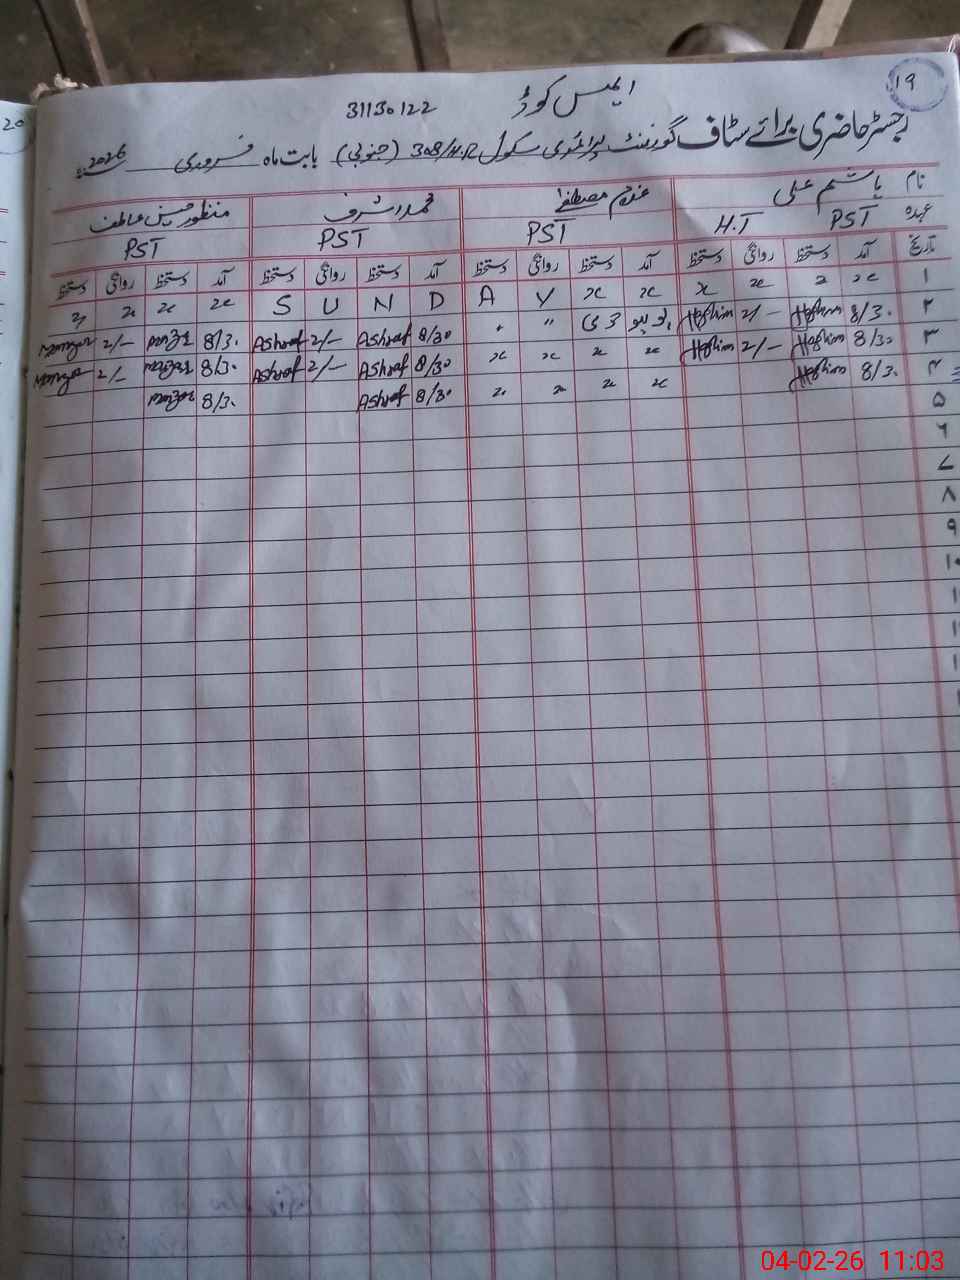 ۱۹
ایمس کوڈ 31130122
رجسٹر حاضری برائے سٹاف گورنمنٹ پرائمری سکول 308/H.R (جنوبی) بابت ماہ فروری 2026ء
نام ہاشم علی غلام مصطفیٰ محمد اشرف منظور حسین عاطف
عہدہ PST H.T PST PST PST
تاریخ آمد دستخط روانگی دستخط آمد دستخط روانگی دستخط آمد دستخط روانگی دستخط آمد دستخط روانگی دستخط
۱ x x x x x x S U N D A Y x x x x
۲ 8/30 Hashim 2/- Hashim 8/30 Ashraf 2/- Ashraf 8/30 Manzor 2/- Manzor
۳ 8/30 Hashim 2/- Hashim x x x x 8/30 Ashraf 2/- Ashraf 8/30 Manzor 2/- Manzor
۴ 8/30 Hashim x x x x 8/30 Ashraf 8/30 Manzor
۵
۶
۷
۸
۹
۱۰
20
04-02-26 11:03